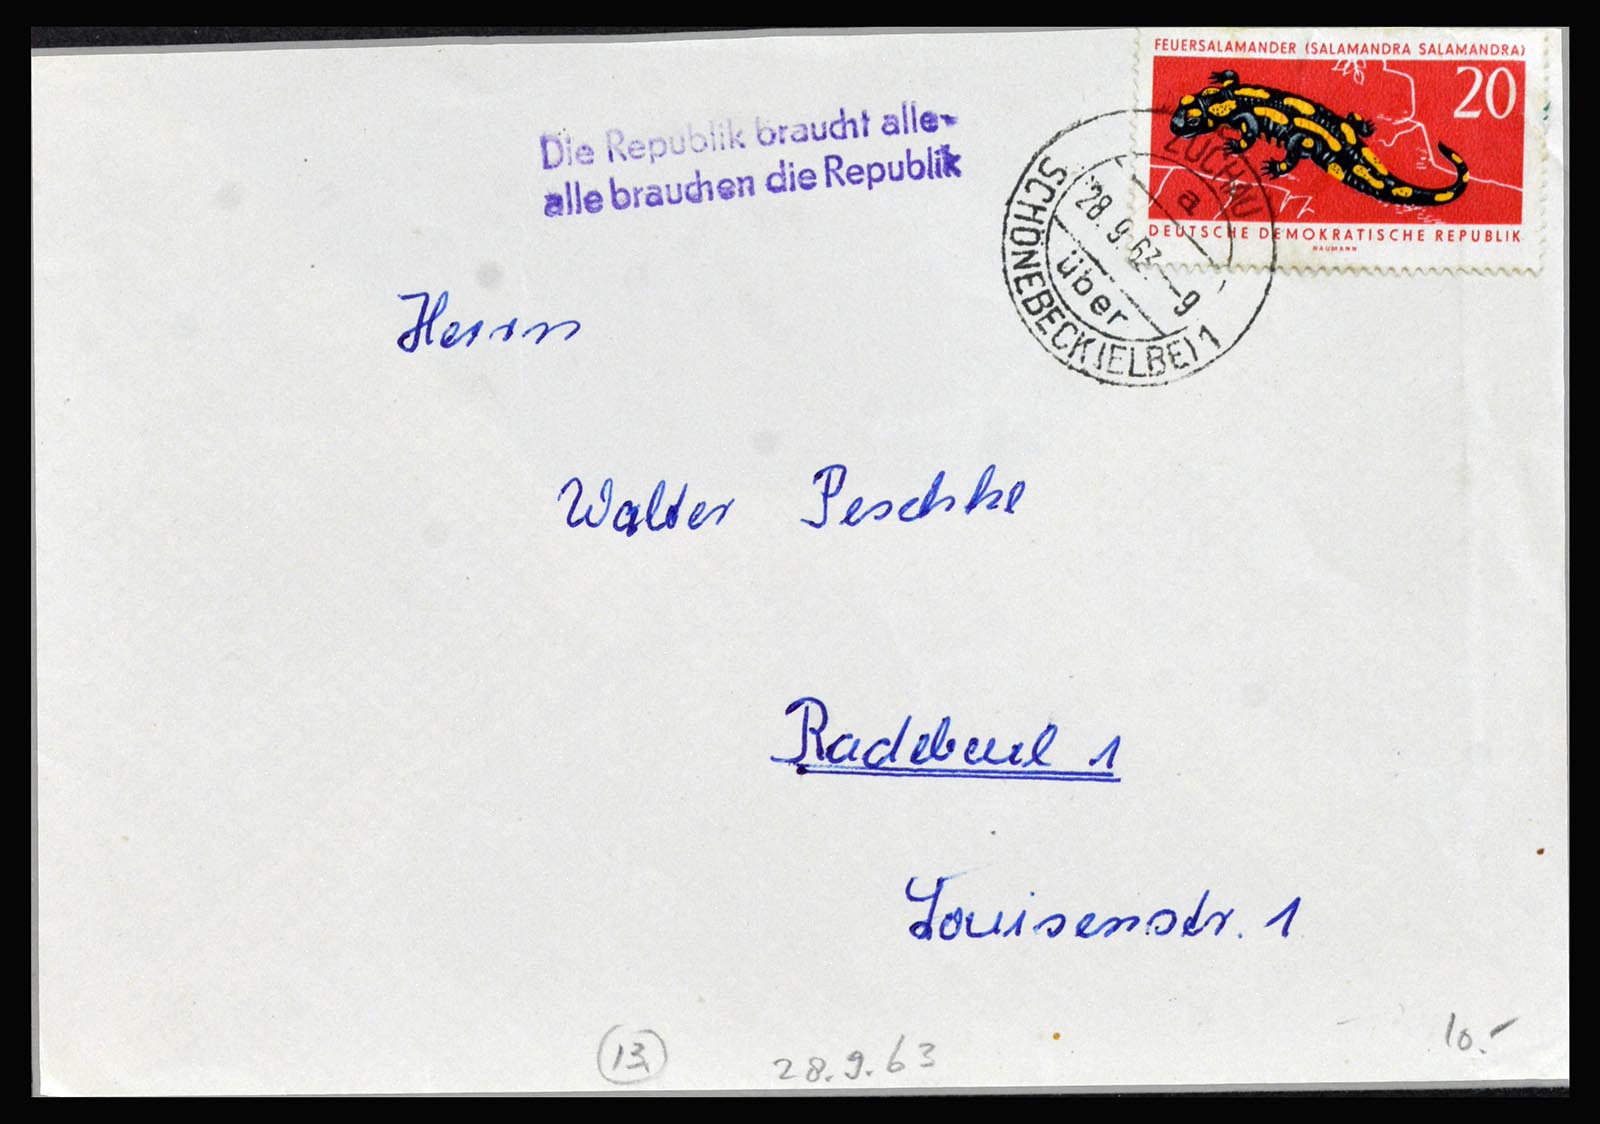 FEUERSALAMANDER (SALAMANDRA SALAMANDRA)
20
DEUTSCHE DEMOKRATISCHE REPUBLIK
NAUMANN
Die Republik braucht alle-
alle brauchen die Republik
ZUCHAU
a
28.9.63-9
über
SCHÖNEBECK(ELBE)1
Herrn
Walter Peschke
Radebeul 1
Louisenstr. 1
13
28.9.63
10.-